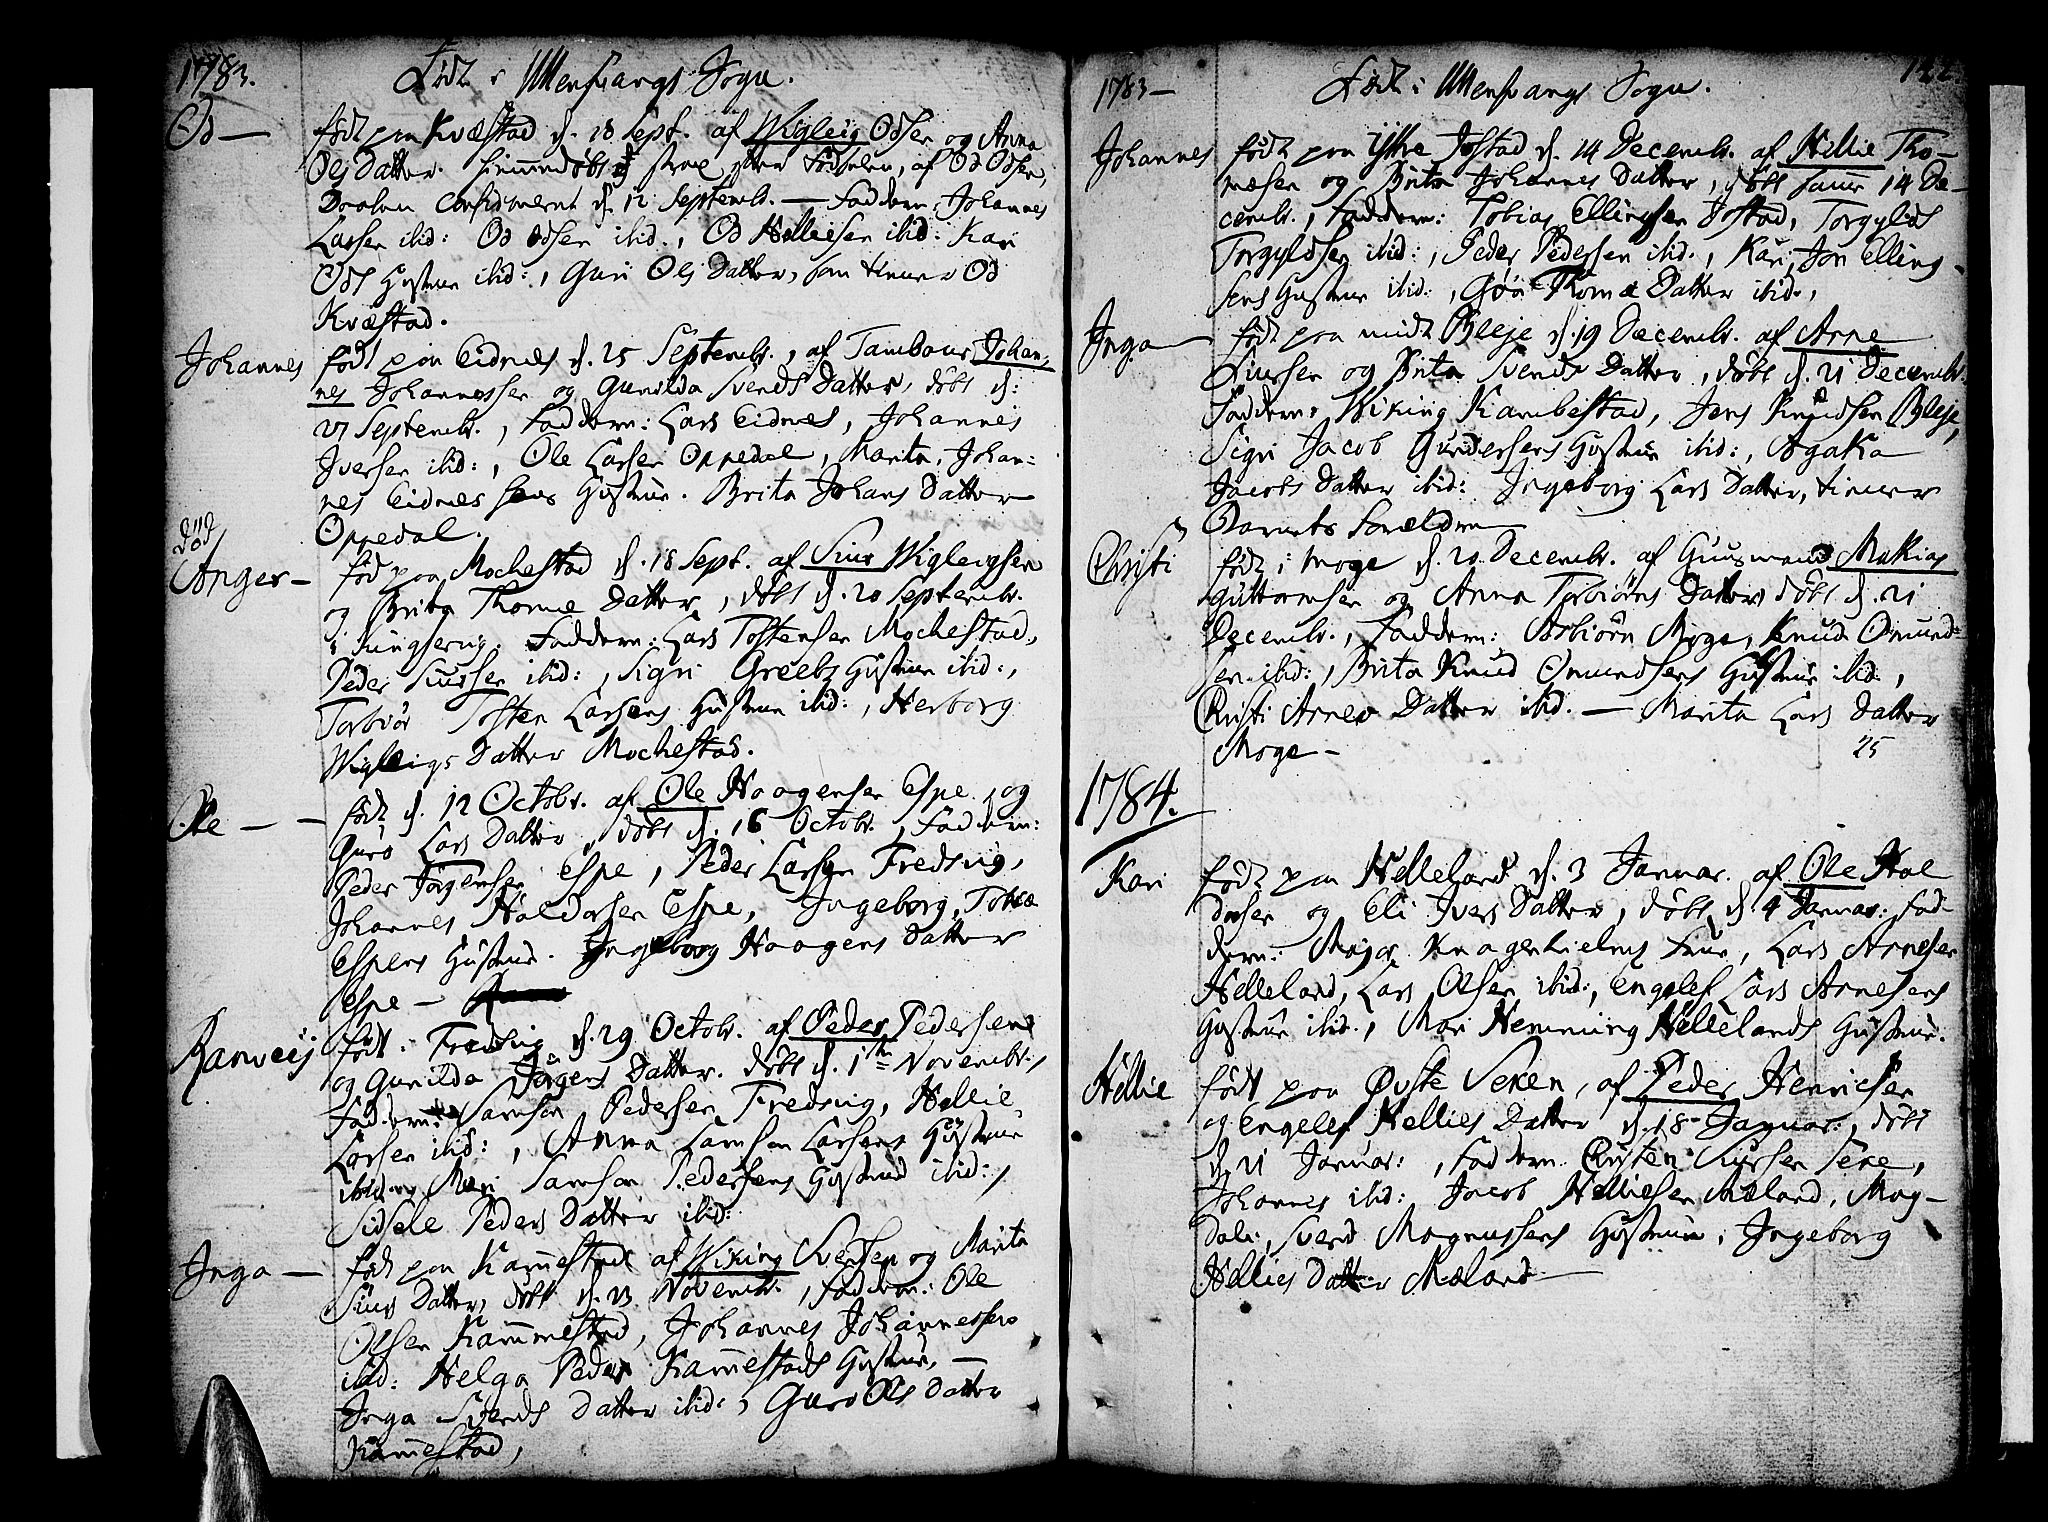 1783.
Födt i Ullensvangs Sogn.
Od —
födt paa Kvæstad d. 10 Sept. af Wigleig Odser og Anna
Ols Datter. hiemmedöbt strax efter Födselen, af Od Odsen,
Daaben confirmeret d. 12 Septembr. — Faddern: Johannes
Larsen ibid: Od Odsen ibid., Od Helliesen ibid: Kari
Ods Hustrue ibid:, Guri Ols Datter, som tiener Od
Kvæstad.
Johannes
födt paa Eidnes d. 25 Septembr., af Tambour Johan-
nes Johannessen og Gunilda Svends Datter, döbt d:
27 Septembr., Faddern: Lars Eidnes, Johannes
Iversen ibid:, Ole Larsen Oppedal, Marita, Johan-
nes Eidnesens Hustrue. Brita Johans Datter
Oppedal.
död
Anger —
föd paa Mochestad d. 18 Sept. af Siur Wigleigsen
og Brita Thomæ Datter, döbt d. 20 Septembr.
i Kingservig. Faddern: Lars Tostensen Mochestad,
Peder Siursen ibid:, Sigri Greebs Hustrue ibid:,
Torbiör Tosten Larsens Hustrue ibid:, Herborg
Wigleigs Datter Mochestad.
Ole — —
födt d. 12 Octobr. af Ole Haagensen Espe, og
Guro Lars Datter, döbt d. 16 Octobr., Faddern:
Peder Jörgensen Espe, Peder Larsen Fresvig,
Johannes Haldorsen Espe, Ingeborg, Tobiæ
Espens Hustrue. Ingeborg Haagens Datter
Espe —
Ranveij
födt i Fresvig d. 29 Octobr. af Peder Pedersen
og Gunilda Jörgens Datter. döbt d. 1te Novembr.,
Faddern: Samson Pedersen Fresvig, Hellie
Larsen ibid:, Anna Samson Larsens Hustrue
ibid, Mari Samson Pedersens Hustrue ibid:,
Sidsele Peders Datter ibid:
Inga —
föd paa Kammestad af Wiking Svensen og Marita
Siurs Datter, döbt d. 23 Novembr., Faddern: Ole
Olsen Kammestad, Johannes Johannessen
ibid: Helga Peder Kammestads Hustrue, —
Inga Svends Datter ibid:, Guro Ols Datter
Kammestad,
1783 —
Födt i Ullensvangs Sogn.
Johannes
födt paa Ystre Jostad d. 14 Decembr. af Hellie Tho-
mæsen og Brita Johannes Datter, döbt samme 14 De-
cembr., Faddern: Tobias Ellingsen Jostad, Torgyld
Torgyldsen ibid:, Peder Pedersen ibid., Kari, Jon Elling-
sens Hustrue ibid:, Goa Thomæ Datter ibid.,
Inga —
födt paa midt Bleje d. 19 Decembr. af Arne
Siursen og Brita Svends Datter, döbt d. 21 Decembr.
Faddern: Wiking Kambestad, Jens Knudsen Bleje,
Sigri Jacob Gundersens Hustrue ibid:, Agata
Jacobs Datter ibid: Ingeborg Lars Datter, tiener
Barnets Forældre
Christi
födt i Moge d. 20 Decembr. af Huusmand Matias
Guttormsen og Anna Torbiörns Datter döbt d. 21
Decembr., Faddern: Asbiörn Moge, Knud Omund-
sen ibid:, Brita Knud Omundsens Hustrue ibid.,
Christi Arnes Datter ibid. — Marita Lars Datter
Moge —
25
1784.
Kari
födt paa Helleland d. 3 Januar. af Ole Hal-
dorsen og Eli Ivers Datter, döbt d. 4 Januar: Fad-
dern: Major Knagenhielms Frue, Lars Arnesen
Helleland, Lars Olsen ibid:, Engelef Lars Arnesens
Hustrue ibid., Mari Hemming Hellelands Hustrue.
Hellie
födt paa Övste Sexen, af Peder Henricsen
og Engelef Hellies Datter d. 18 Januar:, döbt
d. 21 Januar:, Faddern Christen Siursen Sexe,
Johannes ibid: Jacob Helliesen Mæland, Mag-
dali, Svend Magnussens Hustrue, Ingeborg
Hellies Datter Mæland —